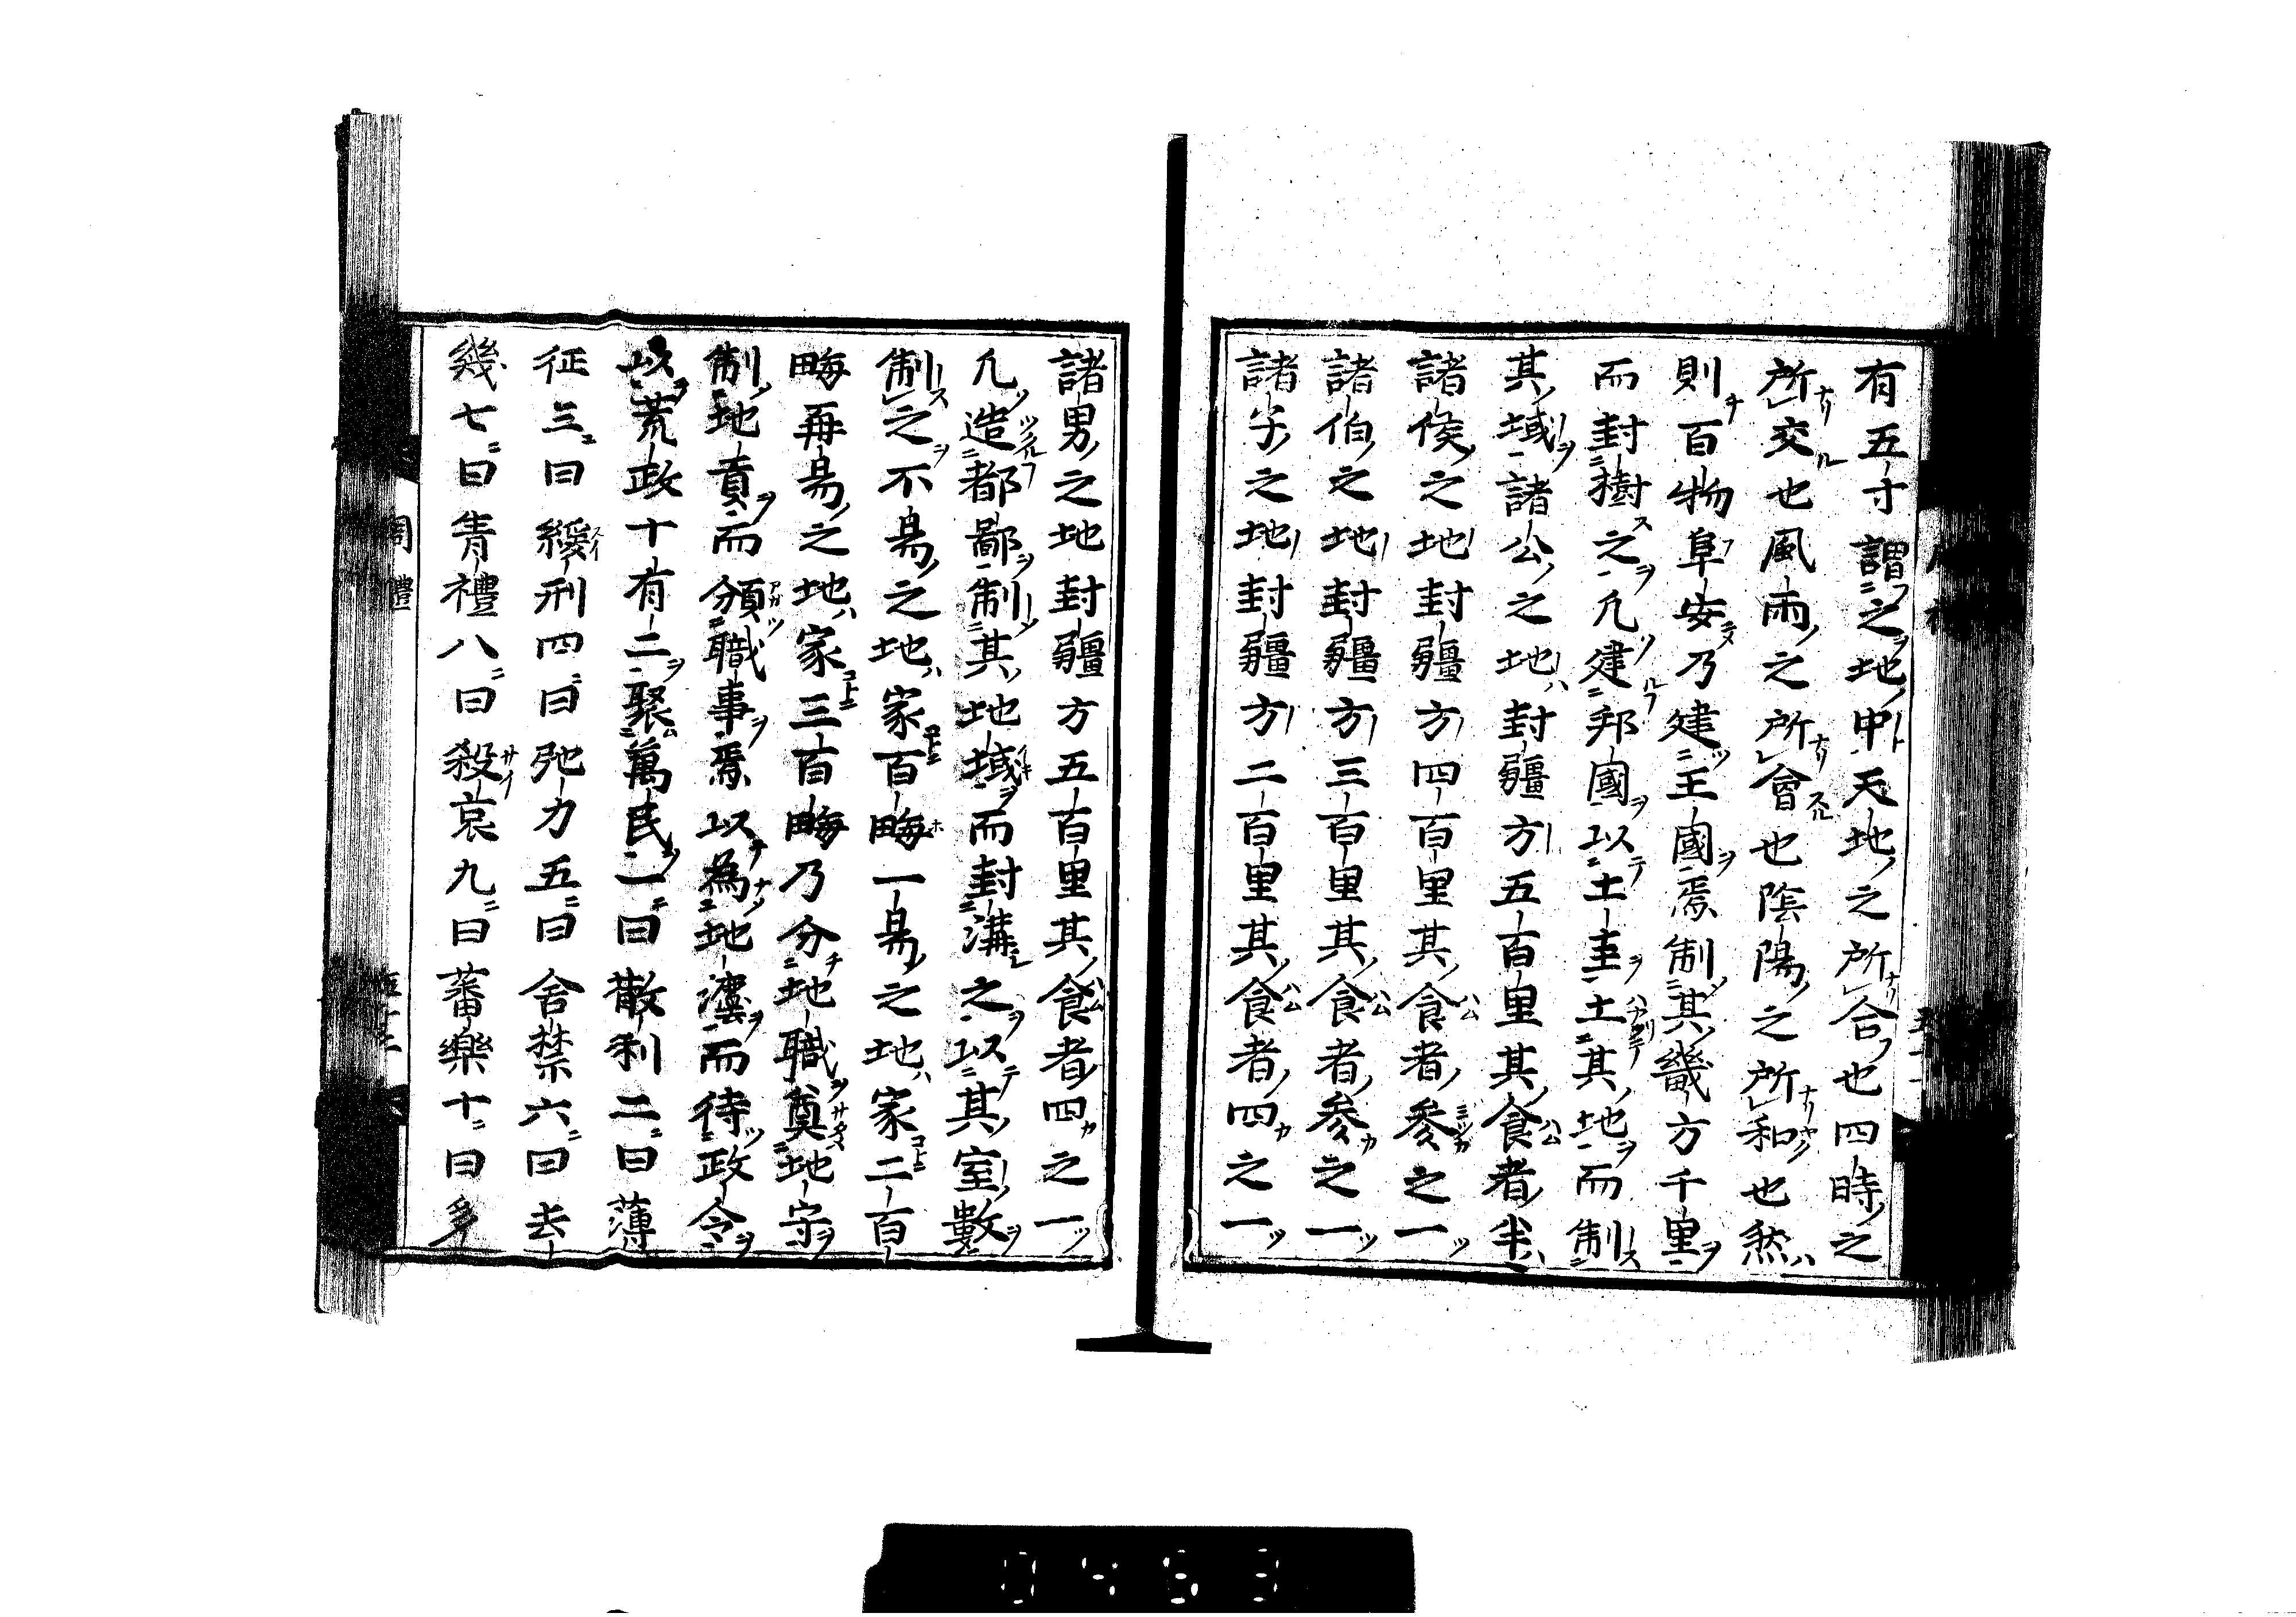 有五寸謂之地中天地之所合也四時之
所交也風雨之所會也陰陽之所和也然
則百物阜安乃建王國焉制其畿方千里
而封樹之凡建邦國以土圭土其地而制
其域諸公之地封疆方五百里其食者半
諸侯之地封疆方四百里其食者參之一
諸伯之地封疆方三百里其食者參之一
諸子之地封疆方二百里其食者四之一
諸男之地封疆方五百里其食者四之一
凡造都鄙制其地域而封溝之以其室數
制之不易之地家百畮一易之地家二百
畮再易之地家三百畮乃分地職奠地守
制地貢而頒職事焉以為地灋而待政令
以荒政十有二聚萬民一曰散利二曰薄
征三曰緩刑四曰弛力五曰舍禁六曰去
幾七曰眚禮八曰殺哀九曰蕃樂十曰多
周禮
0453